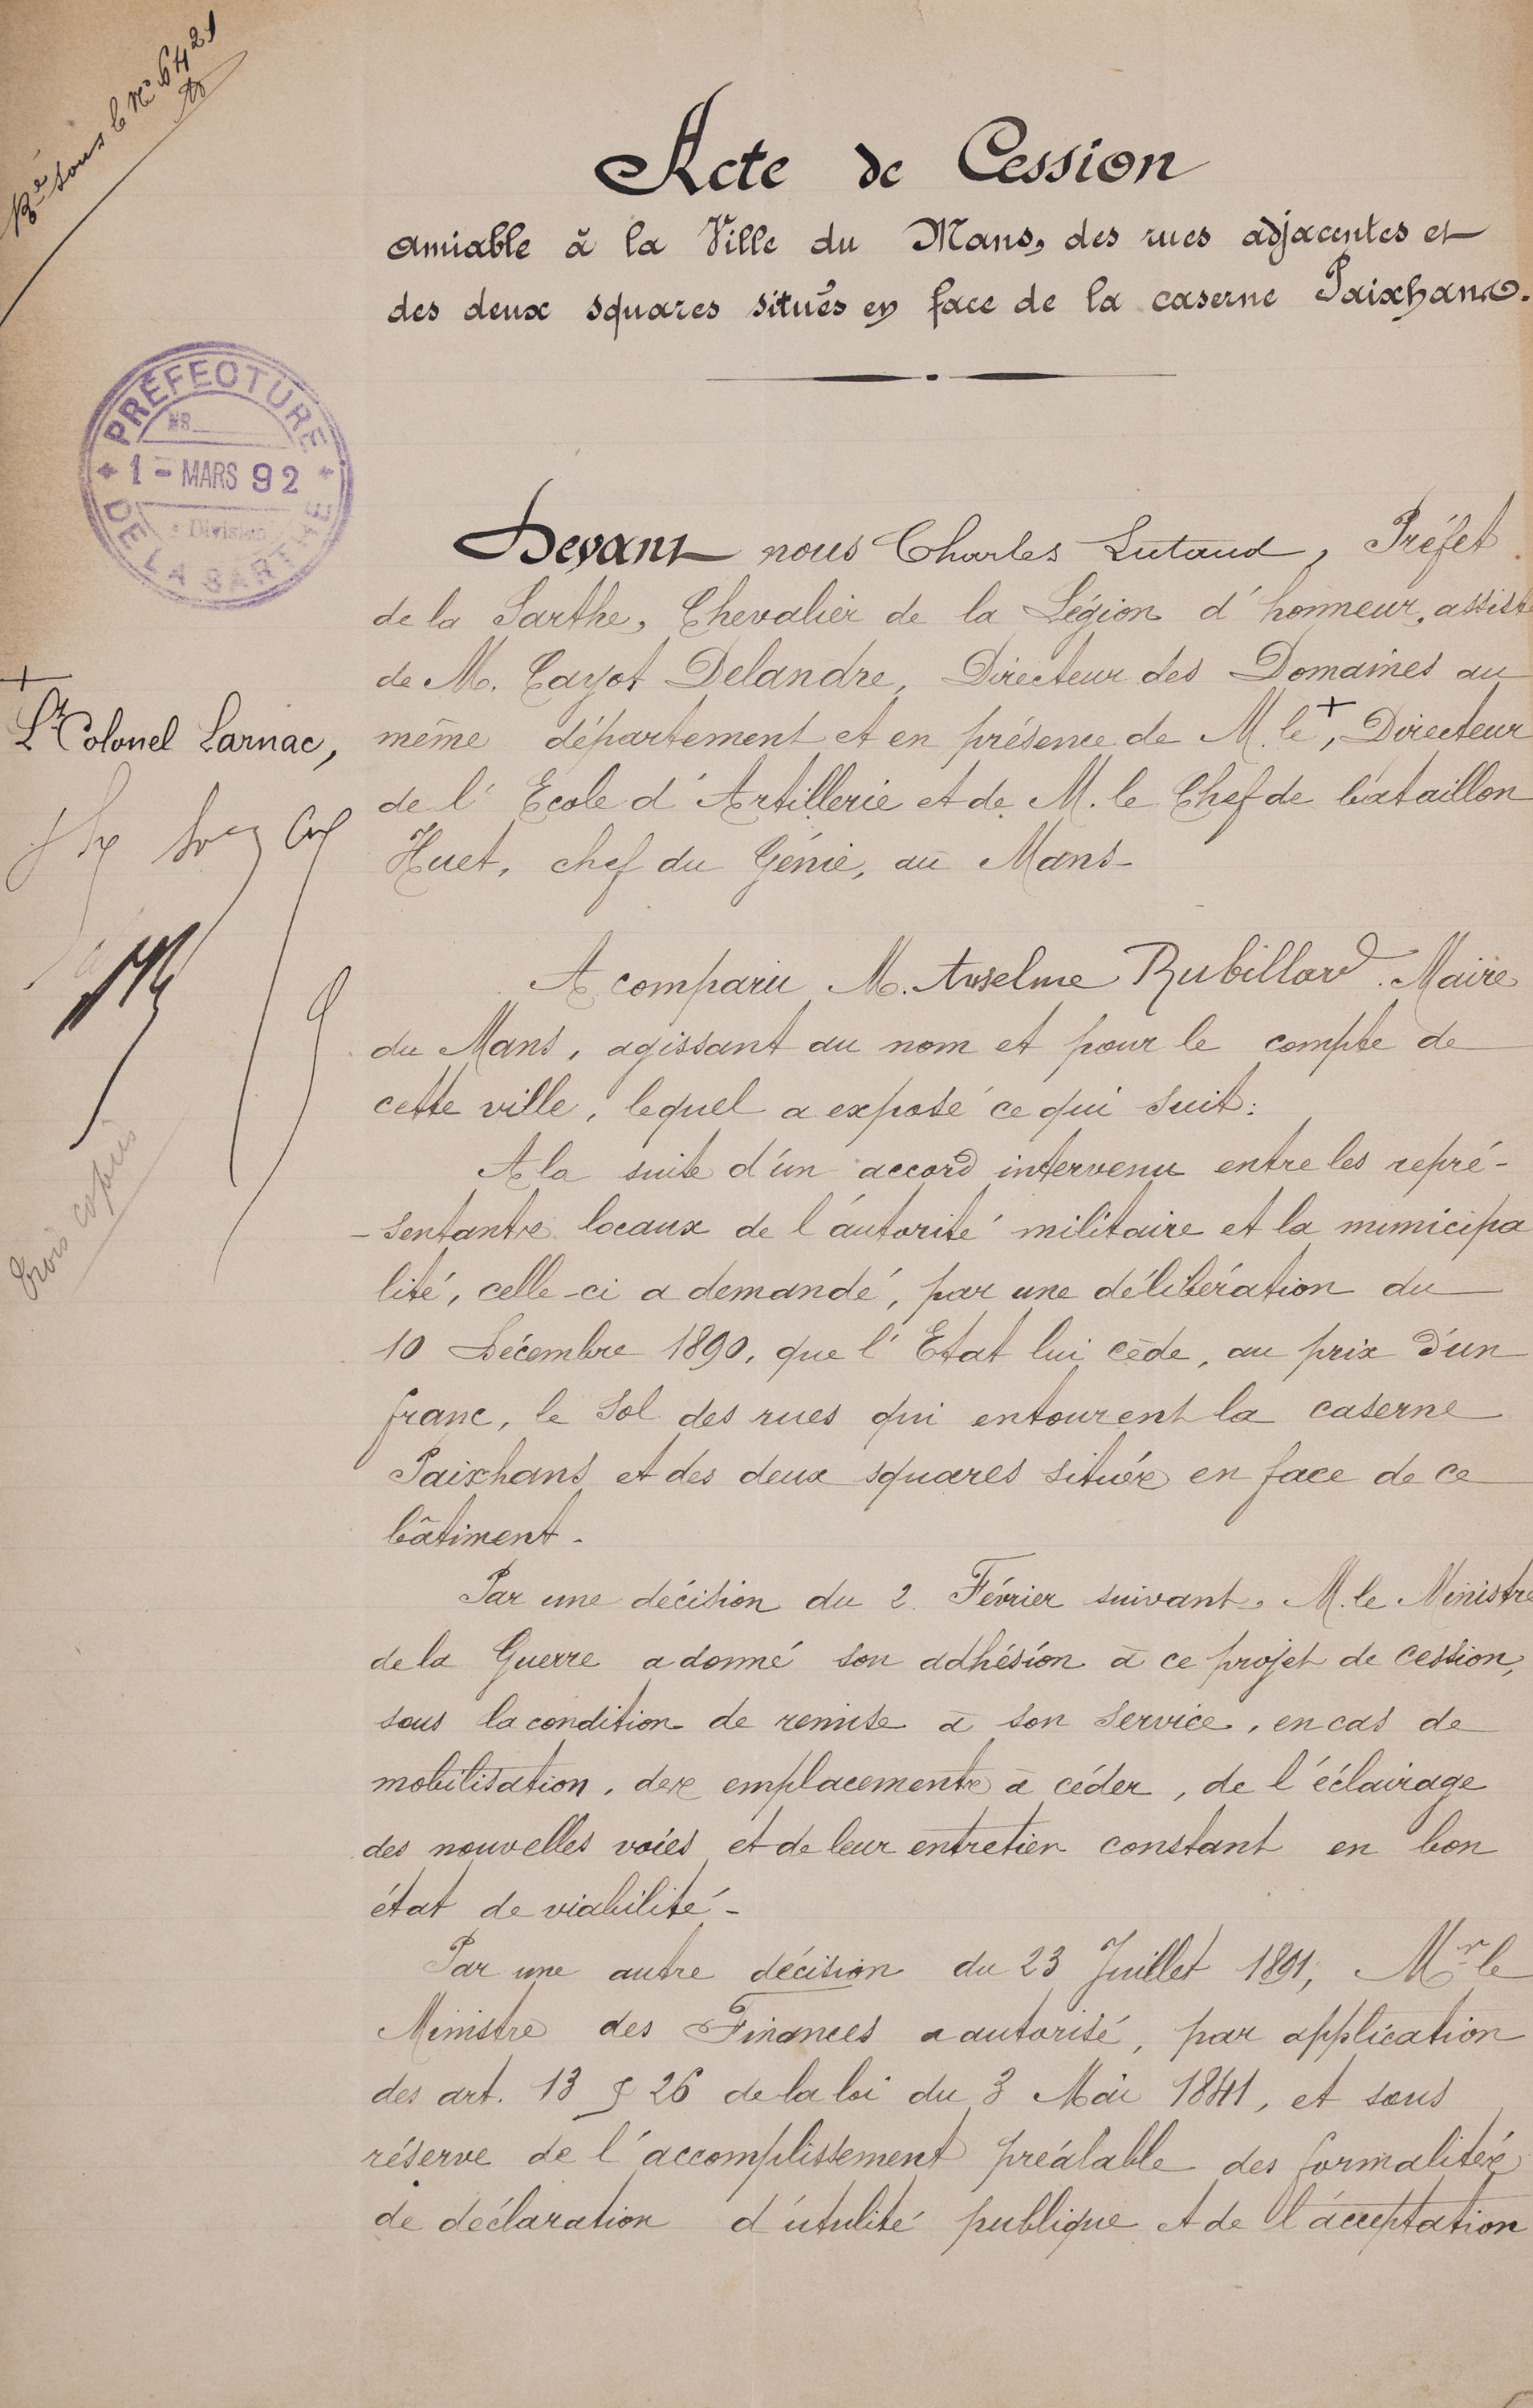 Ré sous le No 6421
Acte de Cession
amiable à la Ville du Mans, des rues adjacentes et
des deux squares situés en face de la caserne Paixhans.
PRÉFECTURE
1 - MARS 92
Division
DE LA SARTHE
Devant nous Charles Lutaud, Préfet
de la Sarthe, Chevalier de la Légion d'honneur, assisté
de M. Cayot Delandre, Directeur des Domaines au
+
Lt Colonel Larnac,
même département et en présence de M. le +, Directeur
de l'Ecole d'Artillerie et de M. le Chef de bataillon
Huet, chef du Génie, au Mans -
A comparu M. Anselme Rubillard. Maire
du Mans, agissant au nom et pour le compte de
cette ville, lequel a exposé ce qui suit:
A la suite d'un accord intervenu entre les repré-
- sentants locaux de l'autorité militaire et la municipa
lité, celle-ci a demandé, par une délibération du
10 Décembre 1890, que l'Etat lui cède, au prix d'un
franc, le sol des rues qui entourent la caserne
Paixhans et des deux squares situés en face de ce
bâtiment -
Trois copies
Par une décision du 2 Février suivant, M. le Ministre
de la Guerre a donné son adhésion à ce projet de cession,
sous la condition de remise à son service, en cas de
mobilisation, des emplacements à céder, de l'éclairage
des nouvelles voies et de leur entretien constant en bon
état de viabilité -
Par une autre décision du 23 Juillet 1891, Mr le
Ministre des Finances a autorisé, par application
des art. 13 § 26 de la loi du 3 Mai 1841, et sous
réserve de l'accomplissement préalable des formalités
de déclaration d'utulité publique et de l'acceptation